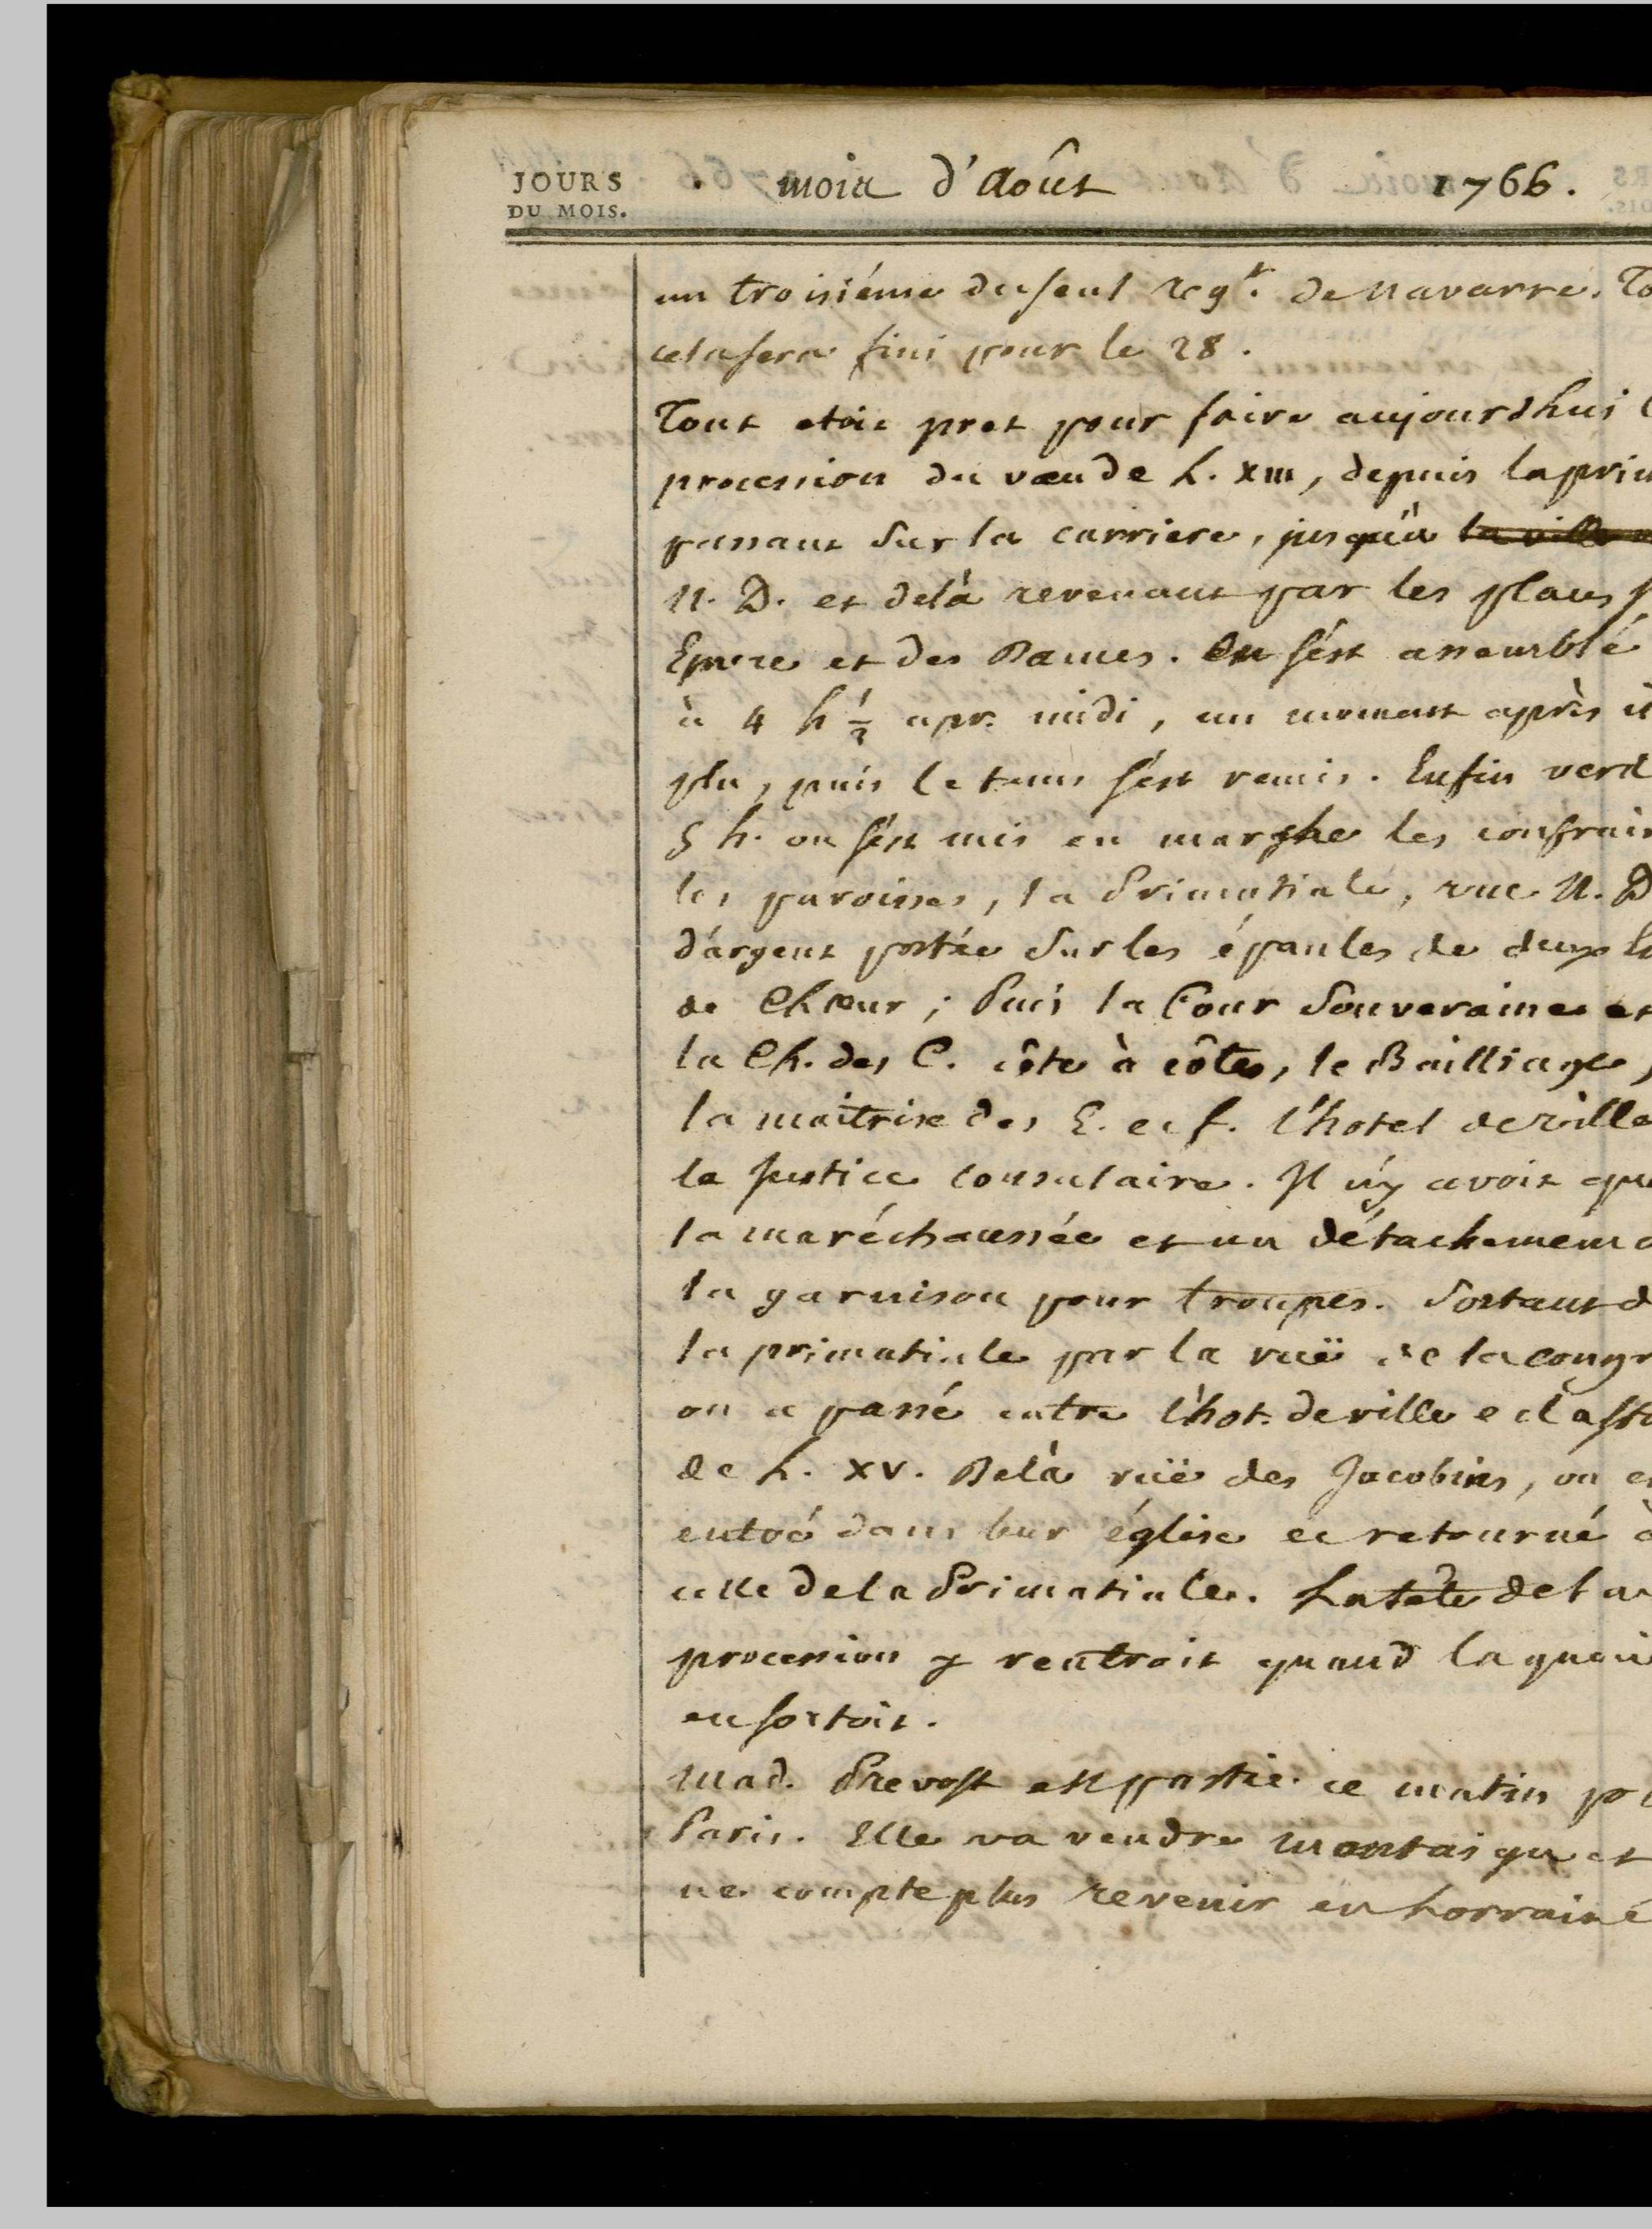 JOURS
DU MOIS.
mois d'Août 1766.
un troisiéme du seul regt. de navarre. To
cela sera fini pour le 28.
Tout etoit pret pour faire aujourdhui l
procession du vœu de L. XIII, depuis la prim
passant sur la carriere, jusqu'à la ville
N. D. et delà revenant par les places
Epvre et des Dames. On s'est assemblé
à 4 h 1/2 apr. midi, un moment après il
plu, puis le tems s'est remis. Enfin vers
5 h. on s'est mis en marche les confrair
les paroisses, la Primatiale, une N. D
d'argent portée sur les épaules de deux
de Chœur; puis la Cour Souveraine et
la Ch. des C. côte à côte, le Bailliage,
la maitrise des E. et f. l'hotel de ville
la Justice consulaire. Il n'y avoit que
la maréchaussée et un détachement d
la garnison pour troupes. Sortant d
la primatiale par la ruë de la congr
on a passé entre l'hot. de ville et la sta
de L. XV. Delà ruë des Jacobins, on e
entré dans leur église et retourné à
celle de la Primatiale. La tête de la
procession y rentroit quand la queüe
en sortoit.
Mad. Prevost est partie ce matin po
Paris. Elle va vendre montaigu et
ne compte plus revenir en Lorraine